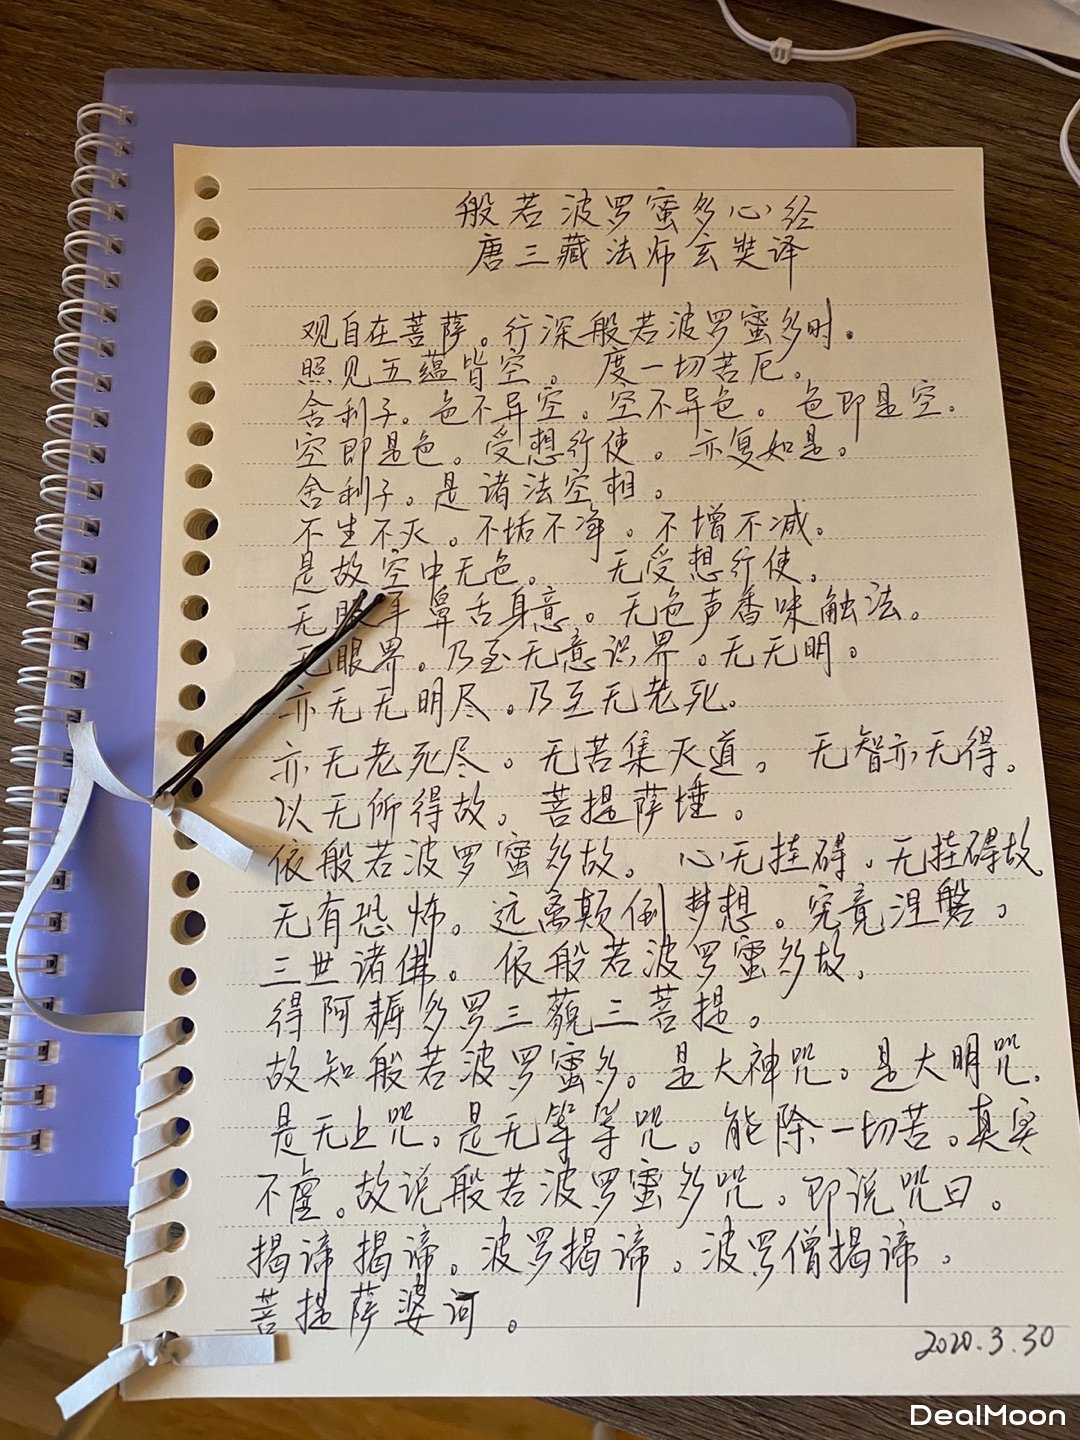 般若波罗蜜多心经
唐三藏法师玄奘译
观自在菩萨。行深般若波罗蜜多时。
照见五蕴皆空。 度一切苦厄。
舍利子。色不异空。空不异色。 色即是空。
空即是色。受想行使。 亦复如是。
舍利子。是诸法空相。
不生不灭。不垢不净。不增不减。
是故空中无色。 无受想行使。
无眼耳鼻舌身意。无色声香味触法。
无眼界。乃至无意识界。无无明。
亦无无明尽。乃至无老死。
亦无老死尽。无苦集灭道。 无智亦无得。
以无所得故。菩提萨埵。
依般若波罗蜜多故。 心无挂碍。无挂碍故
无有恐怖。远离颠倒梦想。究竟涅磐。
三世诸佛。依般若波罗蜜多故。
得阿耨多罗三藐三菩提。
故知般若波罗蜜多。是大神咒。是大明咒。
是无上咒。是无等等咒。能除一切苦。真实
不虚。故说般若波罗蜜多咒。即说咒曰。
揭谛揭谛。波罗揭谛。波罗僧揭谛。
菩提萨婆诃。
2020.3.30
DealMoon